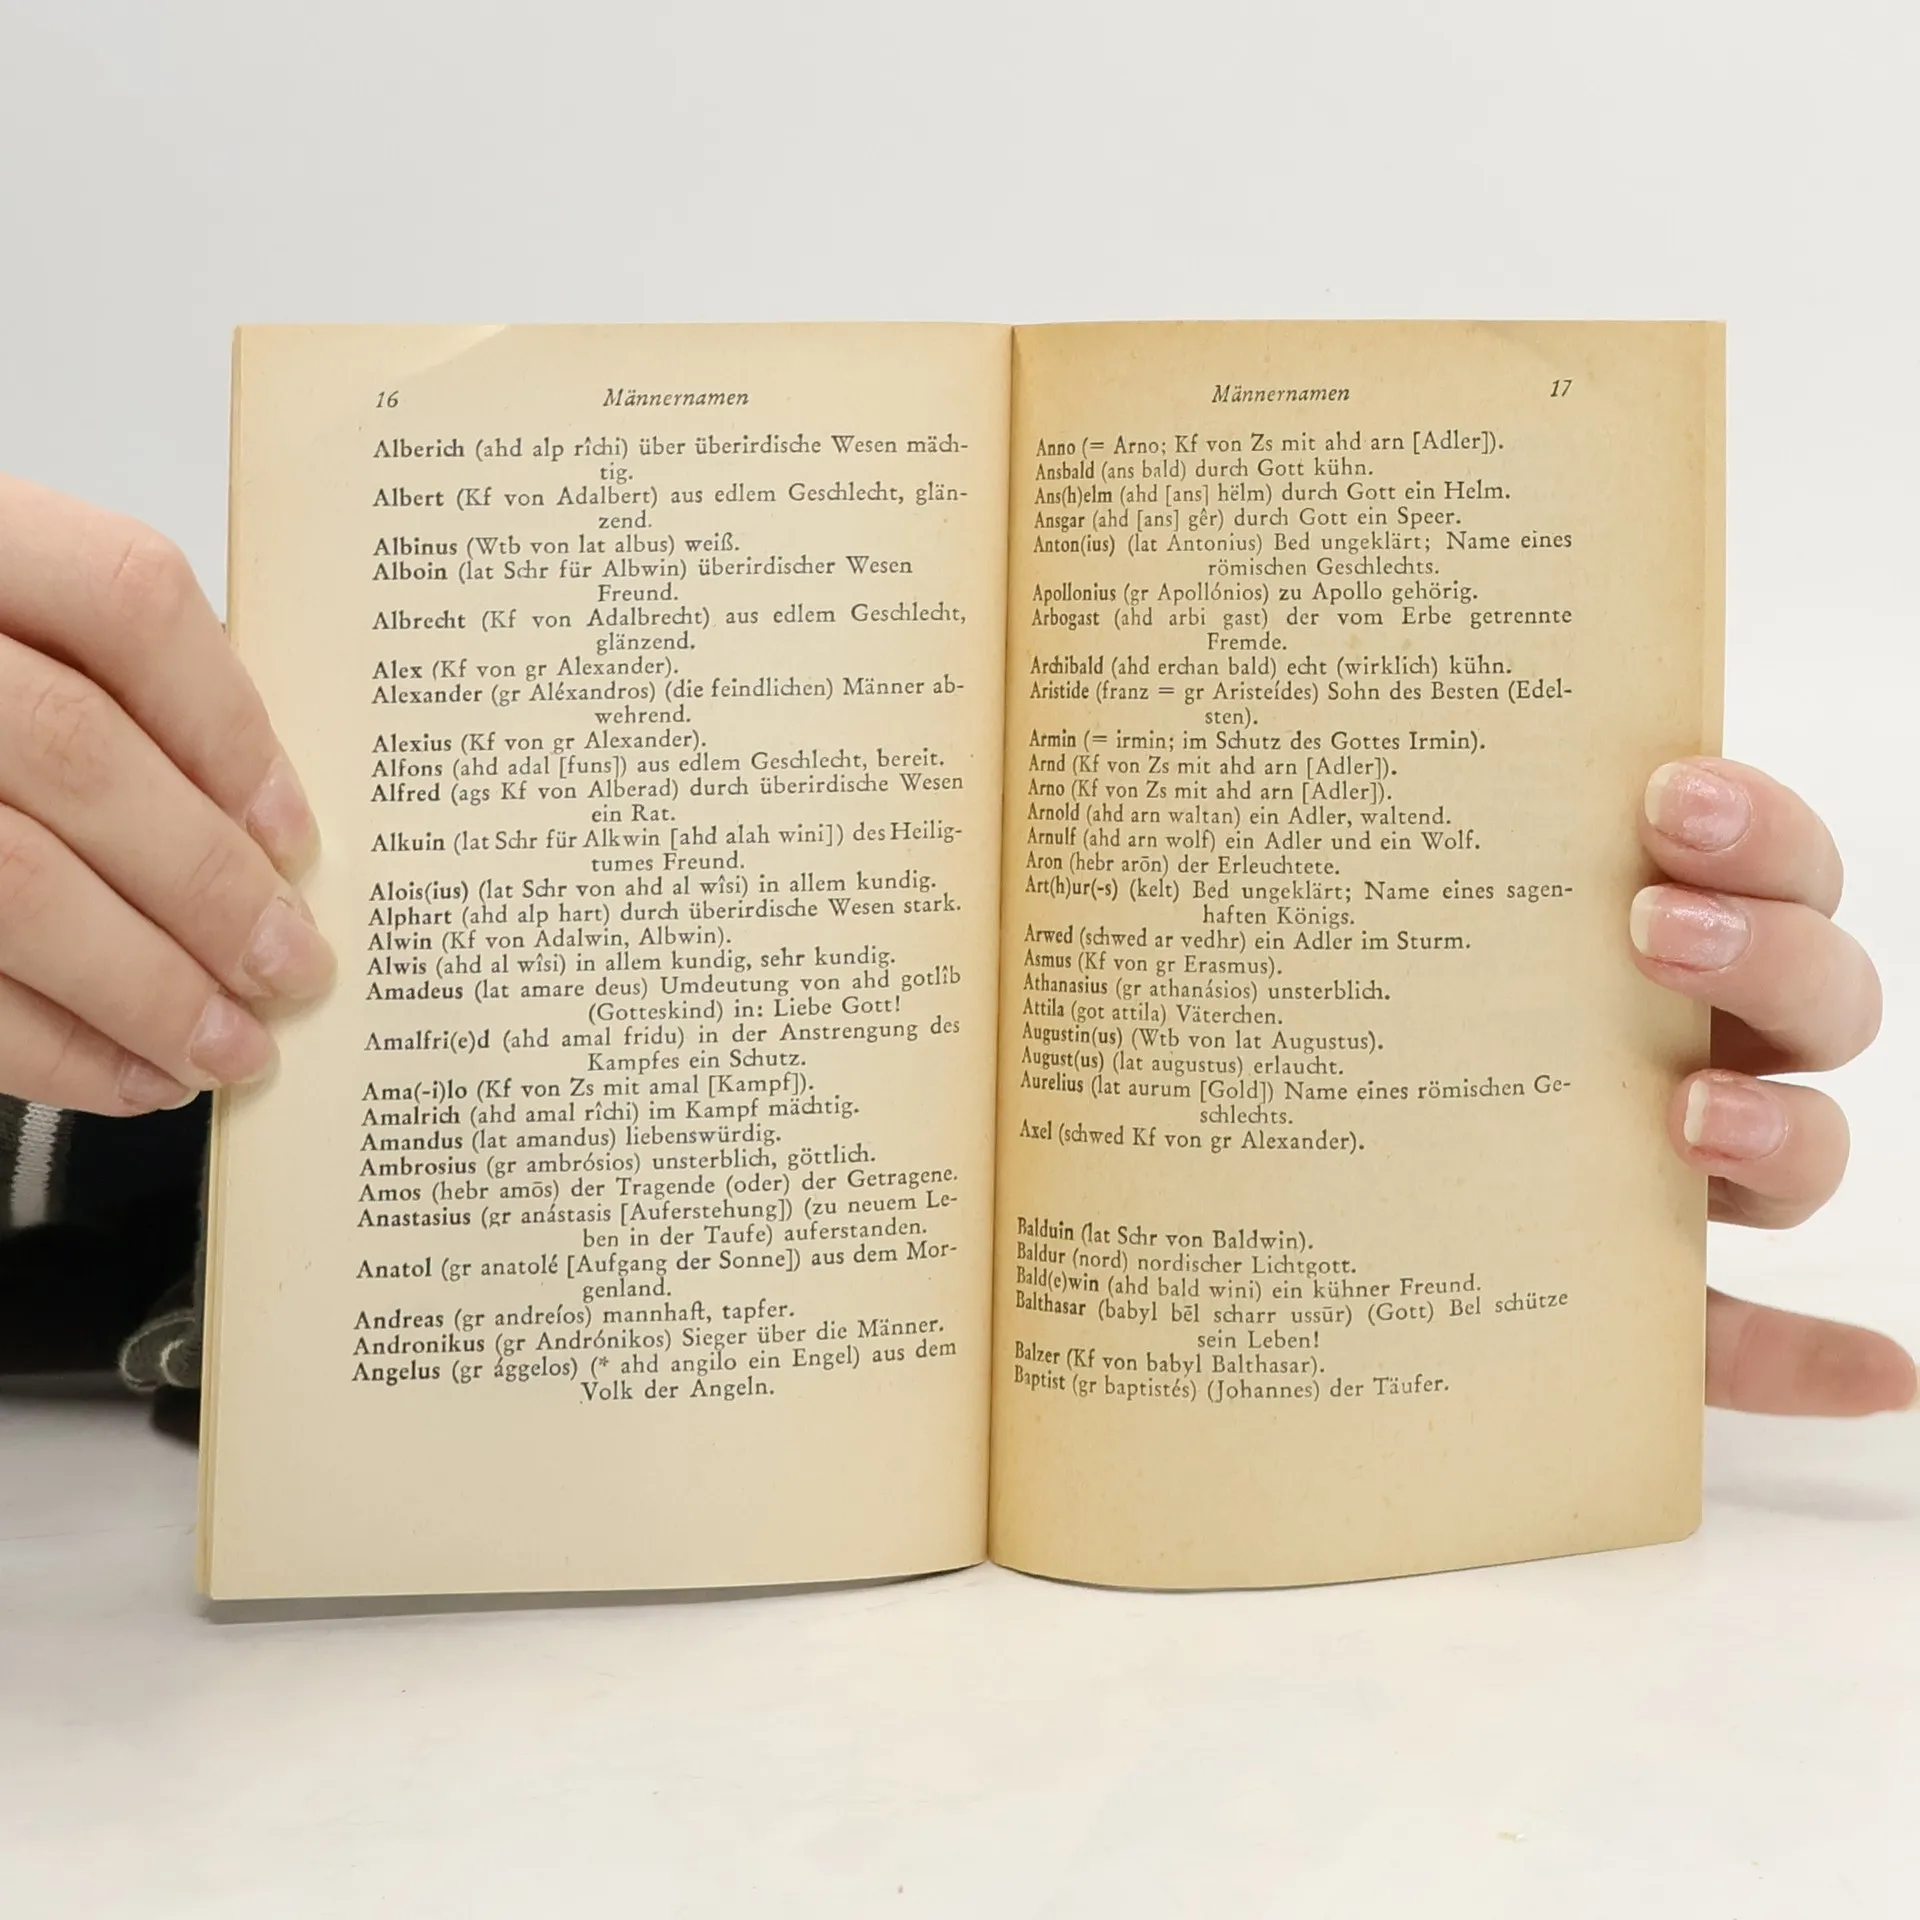 16
Männernamen
Alberich (ahd alp rîchi) über überirdische Wesen mäch-
tig.
Albert (Kf von Adalbert) aus edlem Geschlecht, glän-
zend.
Albinus (Wtb von lat albus) weiß.
Alboin (lat Schr für Albwin) überirdischer Wesen
Freund.
Albrecht (Kf von Adalbrecht) aus edlem Geschlecht,
glänzend.
Alex (Kf von gr Alexander).
Alexander (gr Aléxandros) (die feindlichen) Männer ab-
wehrend.
Alexius (Kf von gr Alexander).
Alfons (ahd adal [funs]) aus edlem Geschlecht, bereit.
Alfred (ags Kf von Alberad) durch überirdische Wesen
ein Rat.
Alkuin (lat Schr für Alkwin [ahd alah wini]) des Heilig-
tumes Freund.
Alois(ius) (lat Schr von ahd al wîsi) in allem kundig.
Alphart (ahd alp hart) durch überirdische Wesen stark.
Alwin (Kf von Adalwin, Albwin).
Alwis (ahd al wîsi) in allem kundig, sehr kundig.
Amadeus (lat amare deus) Umdeutung von ahd gotlîb
(Gotteskind) in: Liebe Gott!
Amalfri(e)d (ahd amal fridu) in der Anstrengung des
Kampfes ein Schutz.
Ama(-i)lo (Kf von Zs mit amal [Kampf]).
Amalrich (ahd amal rîchi) im Kampf mächtig.
Amandus (lat amandus) liebenswürdig.
Ambrosius (gr ambrósios) unsterblich, göttlich.
Amos (hebr amōs) der Tragende (oder) der Getragene.
Anastasius (gr anástasis [Auferstehung]) (zu neuem Le-
ben in der Taufe) auferstanden.
Anatol (gr anatolé [Aufgang der Sonne]) aus dem Mor-
genland.
Andreas (gr andreíos) mannhaft, tapfer.
Andronikus (gr Andrónikos) Sieger über die Männer.
Angelus (gr ággelos) (* ahd angilo ein Engel) aus dem
Volk der Angeln.
Männernamen
17
Anno (= Arno; Kf von Zs mit ahd arn [Adler]).
Ansbald (ans bald) durch Gott kühn.
Ans(h)elm (ahd [ans] hëlm) durch Gott ein Helm.
Ansgar (ahd [ans] gêr) durch Gott ein Speer.
Anton(ius) (lat Antonius) Bed ungeklärt; Name eines
römischen Geschlechts.
Apollonius (gr Apollónios) zu Apollo gehörig.
Arbogast (ahd arbi gast) der vom Erbe getrennte
Fremde.
Archibald (ahd erchan bald) echt (wirklich) kühn.
Aristide (franz = gr Aristeídes) Sohn des Besten (Edel-
sten).
Armin (= irmin; im Schutz des Gottes Irmin).
Arnd (Kf von Zs mit ahd arn [Adler]).
Arno (Kf von Zs mit ahd arn [Adler]).
Arnold (ahd arn waltan) ein Adler, waltend.
Arnulf (ahd arn wolf) ein Adler und ein Wolf.
Aron (hebr arōn) der Erleuchtete.
Art(h)ur(-s) (kelt) Bed ungeklärt; Name eines sagen-
haften Königs.
Arwed (schwed ar vedhr) ein Adler im Sturm.
Asmus (Kf von gr Erasmus).
Athanasius (gr athanásios) unsterblich.
Attila (got attila) Väterchen.
Augustin(us) (Wtb von lat Augustus).
August(us) (lat augustus) erlaucht.
Aurelius (lat aurum [Gold]) Name eines römischen Ge-
schlechts.
Axel (schwed Kf von gr Alexander).
Balduin (lat Schr von Baldwin).
Baldur (nord) nordischer Lichtgott.
Bald(e)win (ahd bald wini) ein kühner Freund.
Balthasar (babyl bēl scharr ussūr) (Gott) Bel schütze
sein Leben!
Balzer (Kf von babyl Balthasar).
Baptist (gr baptistés) (Johannes) der Täufer.